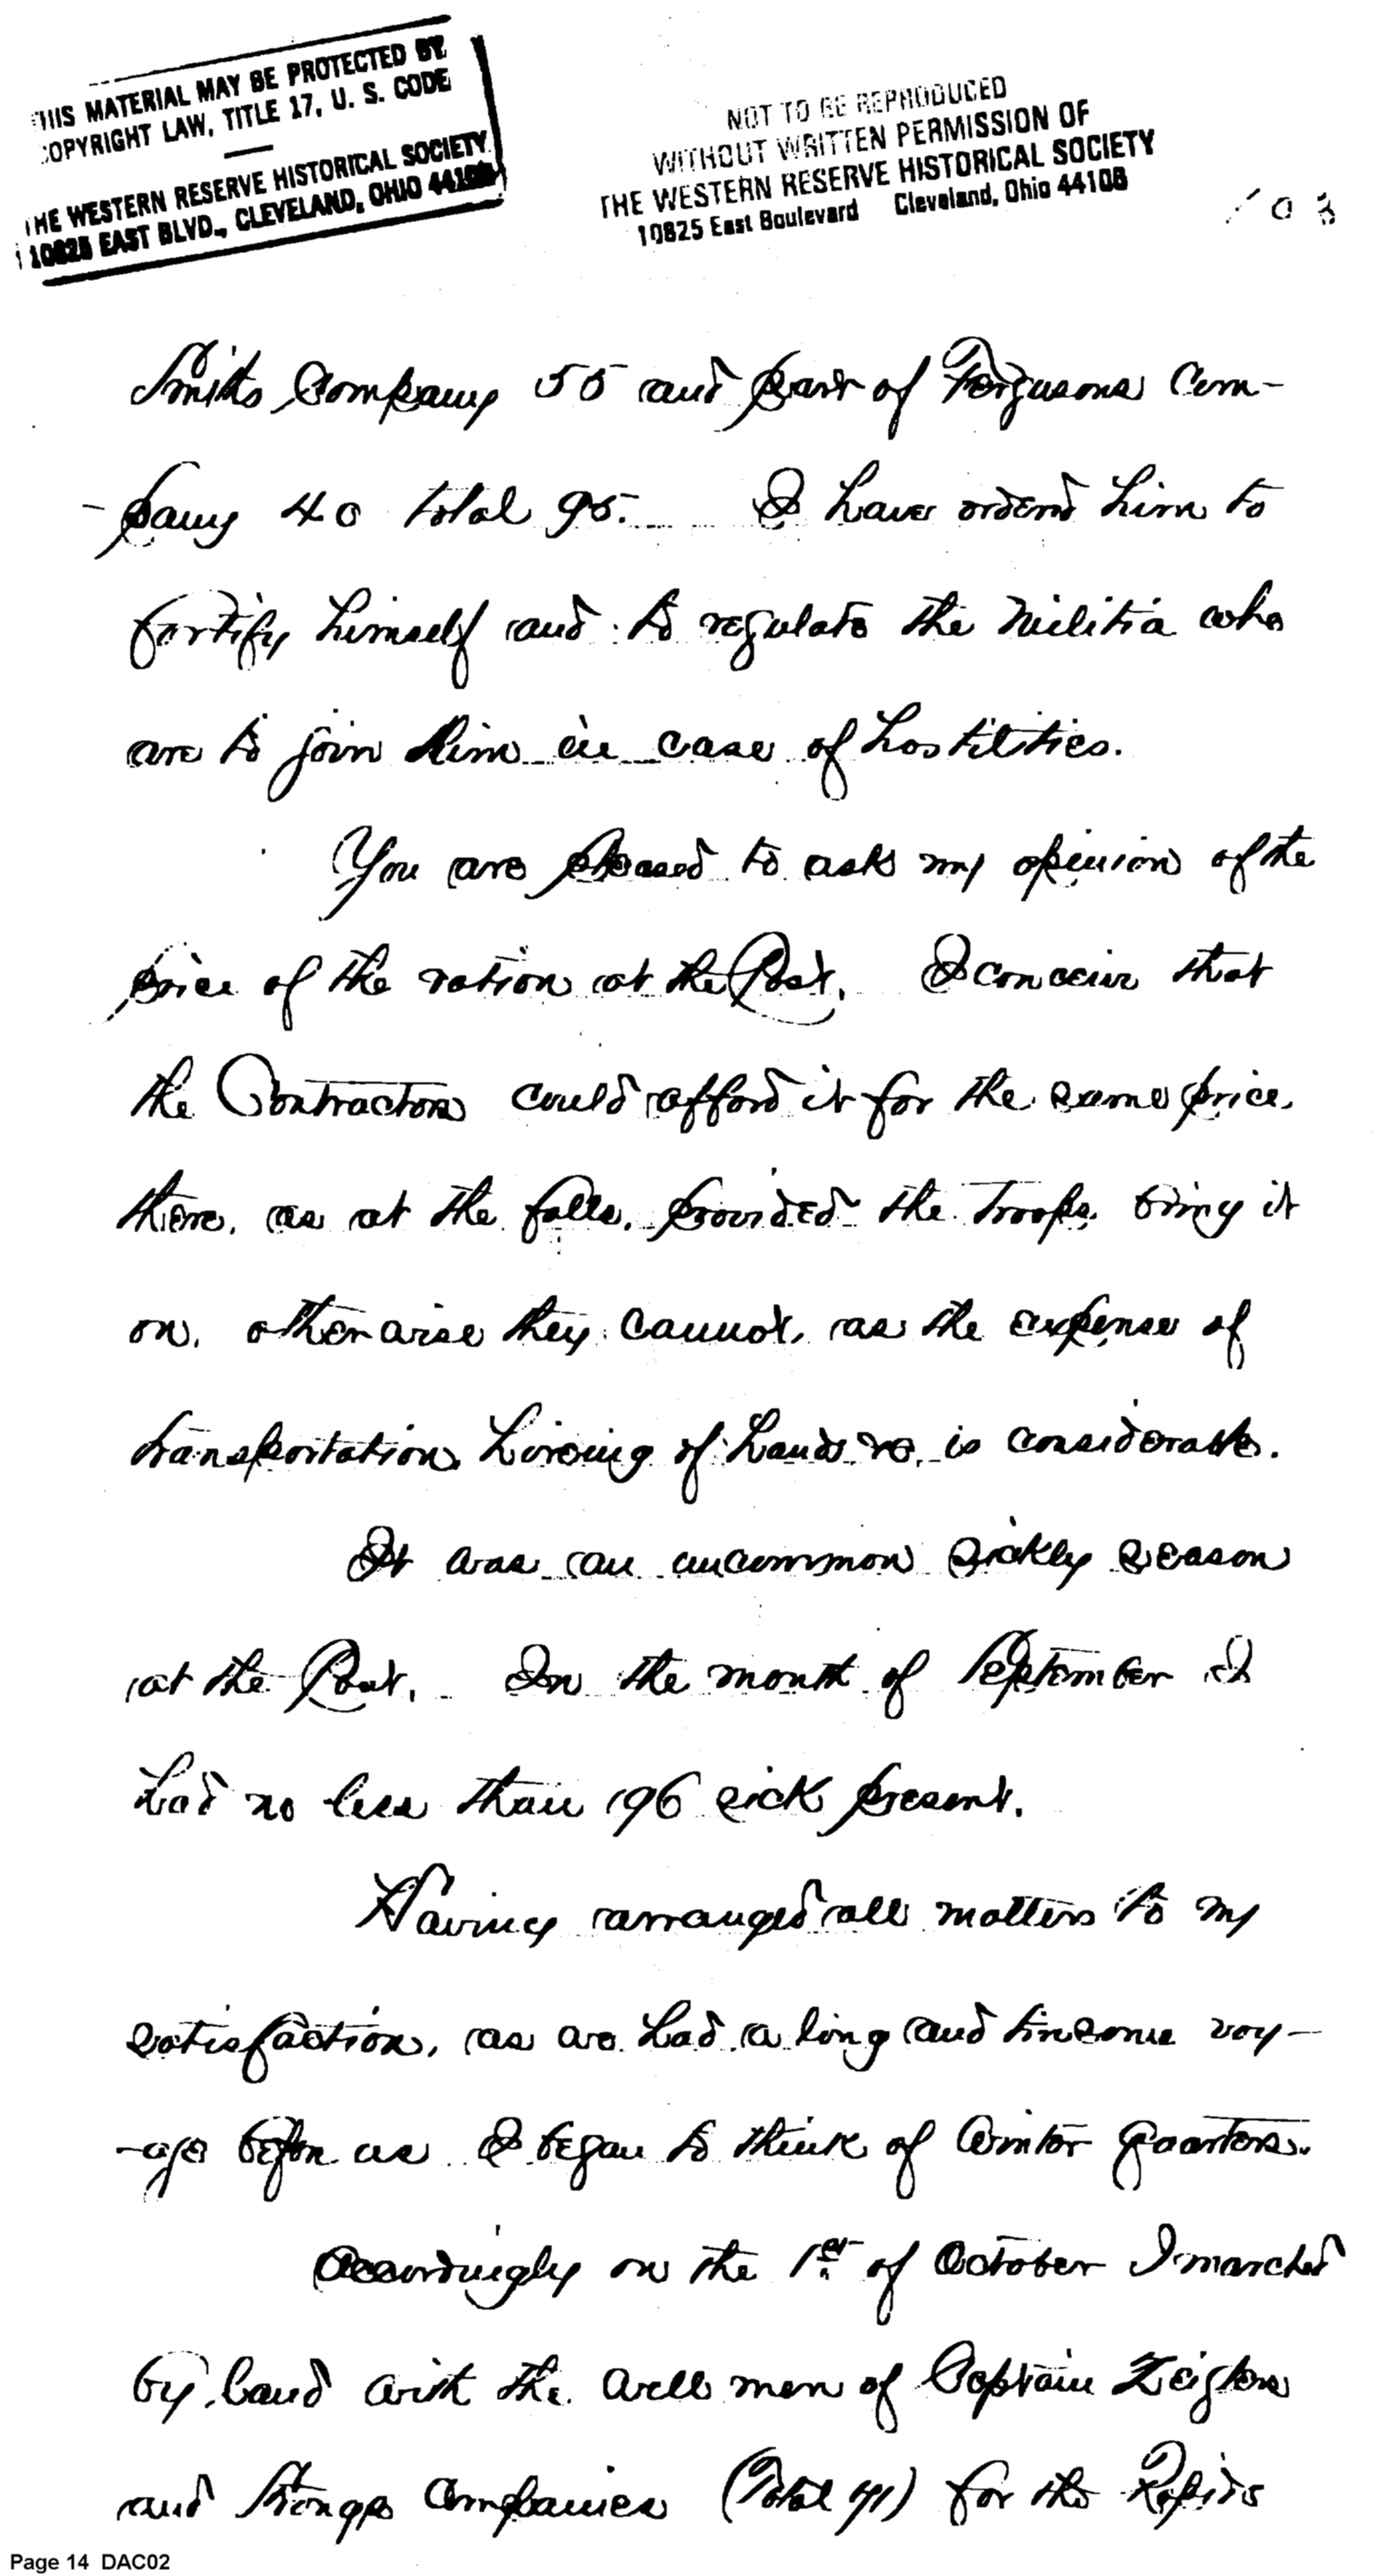 THIS MATERIAL MAY BE PROTECTED BY
COPYRIGHT LAW, TITLE 17, U. S. CODE
THE WESTERN RESERVE HISTORICAL SOCIETY
10825 EAST BLVD., CLEVELAND, OHIO 44106
NOT TO BE REPRODUCED
WITHOUT WRITTEN PERMISSION OF
THE WESTERN RESERVE HISTORICAL SOCIETY
10825 East Boulevard Cleveland, Ohio 44106
103
Smiths Company 55 and part of Fergusons Com-
-pany 40 total 95. I have ordered him to
fortify himself and to regulate the Militia who
are to join him in case of hostilities.
You are pleased to ask my opinion of the
price of the ration at the Post. I conceive that
the Contractors could afford it for the same price,
there, as at the falls, provided the troops bring it
on, otherwise they cannot, as the expense of
transportation, hireing of hands &c, is considerable.
It was an uncommon sickly season
at the Post. In the month of September I
had no less than 196 sick present.
Having arranged all matters to my
satisfaction, as we had a long and tiresome voy-
-age before us I began to think of Winter Quarters.
Accordingly on the 1st of October I marched
by land with the well men of Captain Zeiglers
and Strongs Companies (Total 71) for the Rapids
Page 14 DAC02